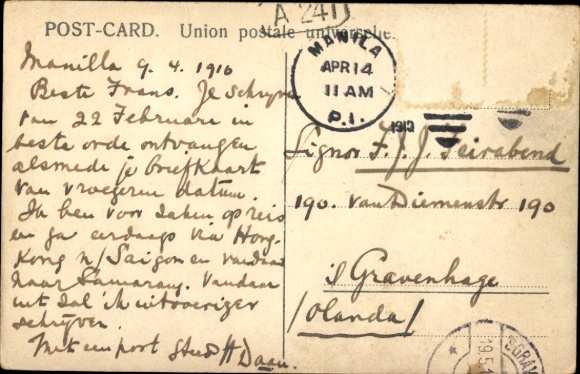 A 241
POST-CARD. Union postale universelle.
MANILA
APR 14
11 AM
P.I.
1910
Manilla 9.4.1910
Beste Frans. Je schrijven
van 22 Februari in
beste orde ontvangen
alsmede je briefkaart
van vroegeren datum.
Ik ben voor zaken op reis
en ga eerdaags via Hong-
Kong n/Saigon en vandaar
naar Samarang. Vandaar
uit zal ik uitvoeriger
schrijven.
Met een poot steeds H Daan.
Signor F. J. J. Feirabend
190. van Diemenstr 190
's Gravenhage
/Olanda/
'SGRAV